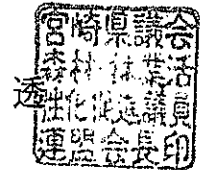 透
宮崎県議会
森林林業活
性化促進議員
連盟会長印